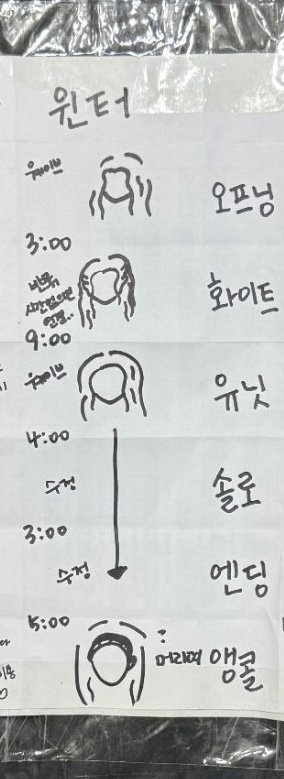 윈터
웨이브
오프닝
3:00
화이트
9:00
웨이브
유닛
4:00
수정
솔로
3:00
수정
엔딩
5:00
머리띠 앵콜